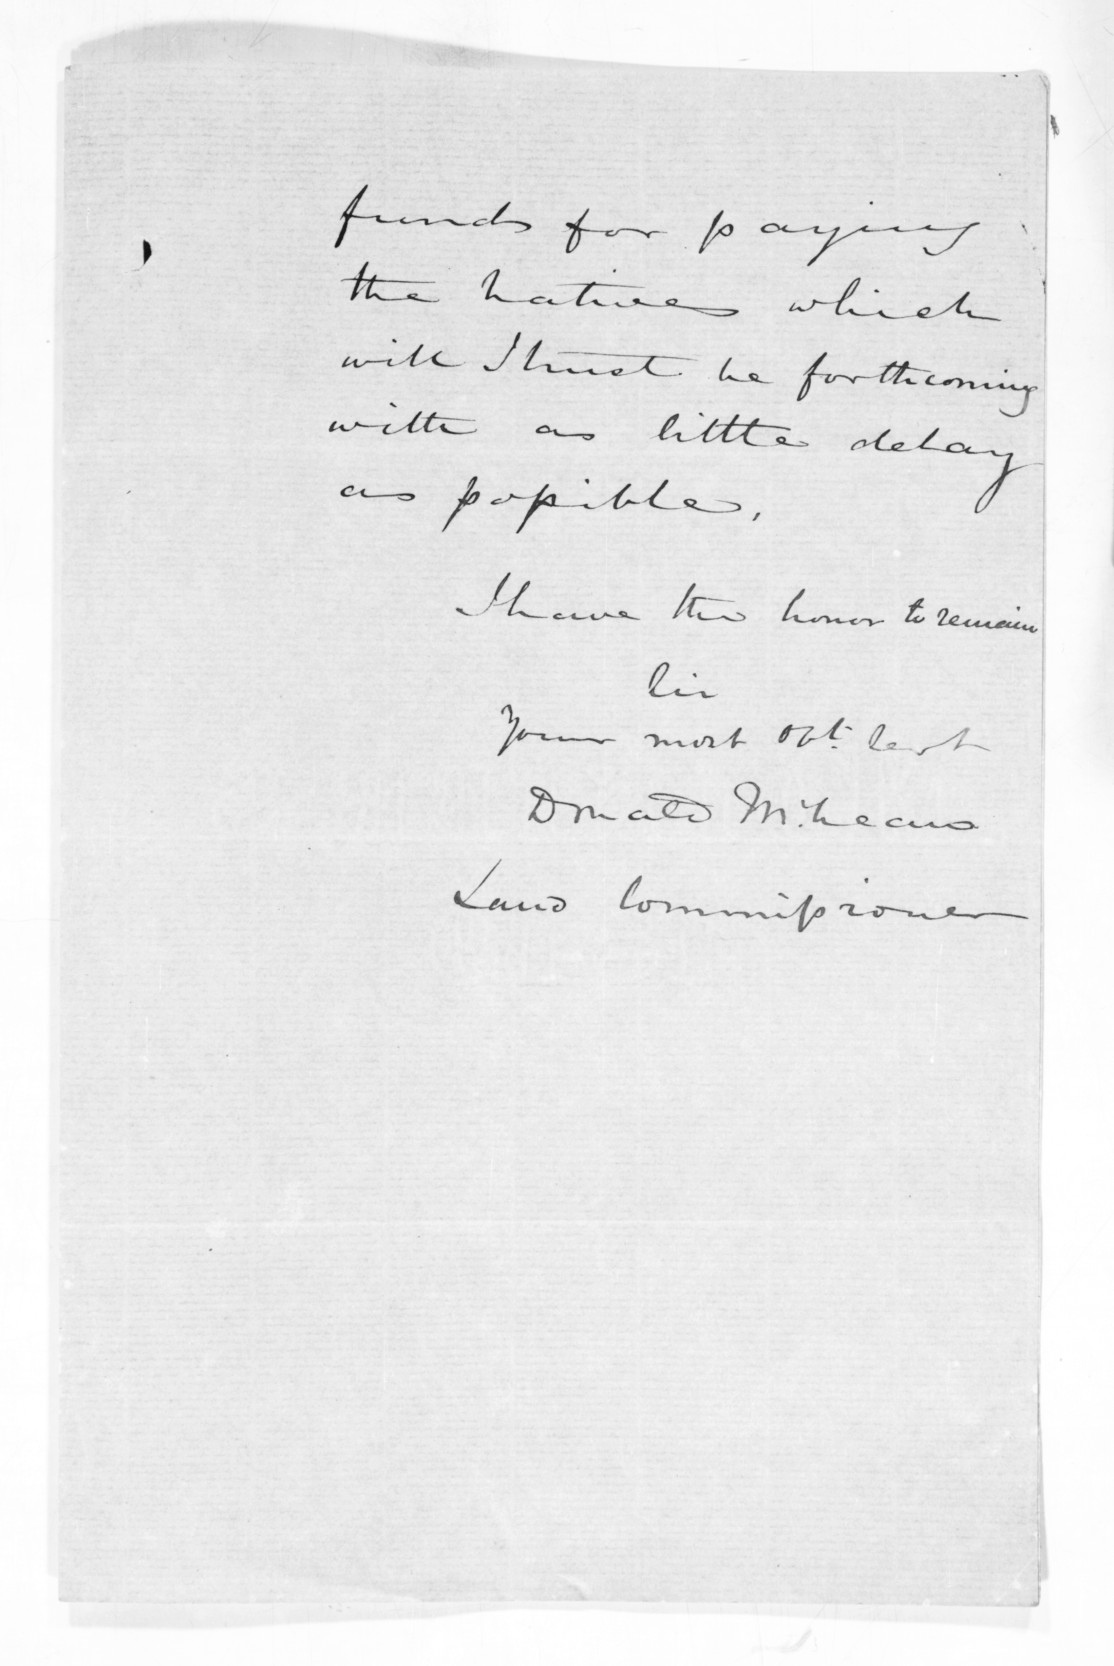 funds for paying
the natives which
will I trust be forthcoming
with as little delay
as possible.
I have the honor to remain
Sir
Your most obt. Servt
Donald McLean
Land Commissioner